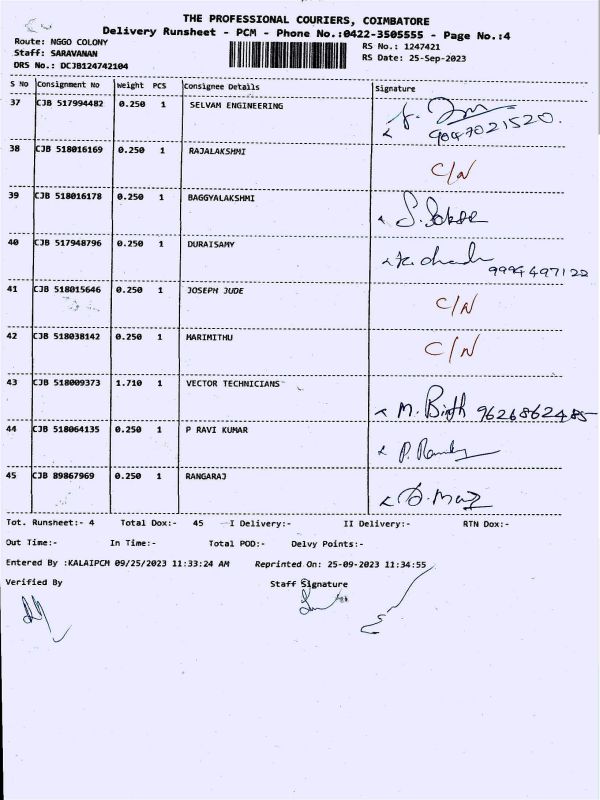 THE PROFESSIONAL COURIERS, COIMBATORE
Delivery Runsheet - PCM - Phone No.:0422-3505555 - Page No.:4
Route: NGGO COLONY
RS No.: 1247421
Staff: SARAVANAN
RS Date: 25-Sep-2023
DRS No.: DCJB124742104
S No Consignment No Weight PCS Consignee Details Signature
37 CJB 517994482 0.250 1 SELVAM ENGINEERING
9047021520.
38 CJB 518016169 0.250 1 RAJALAKSHMI C/N
39 CJB 518016178 0.250 1 BAGGYALAKSHMI
40 CJB 517948796 0.250 1 DURAISAMY
9994497122
41 CJB 518015646 0.250 1 JOSEPH JUDE C/N
42 CJB 518038142 0.250 1 MARIMITHU C/N
43 CJB 518009373 1.710 1 VECTOR TECHNICIANS
9626862485
44 CJB 518064135 0.250 1 P RAVI KUMAR
45 CJB 89867969 0.250 1 RANGARAJ
Tot. Runsheet:- 4 Total Dox:- 45 I Delivery:- II Delivery:- RTN Dox:-
Out Time:- In Time:- Total POD:- Delvy Points:-
Entered By :KALAIPCM 09/25/2023 11:33:24 AM Reprinted On: 25-09-2023 11:34:55
Verified By Staff Signature